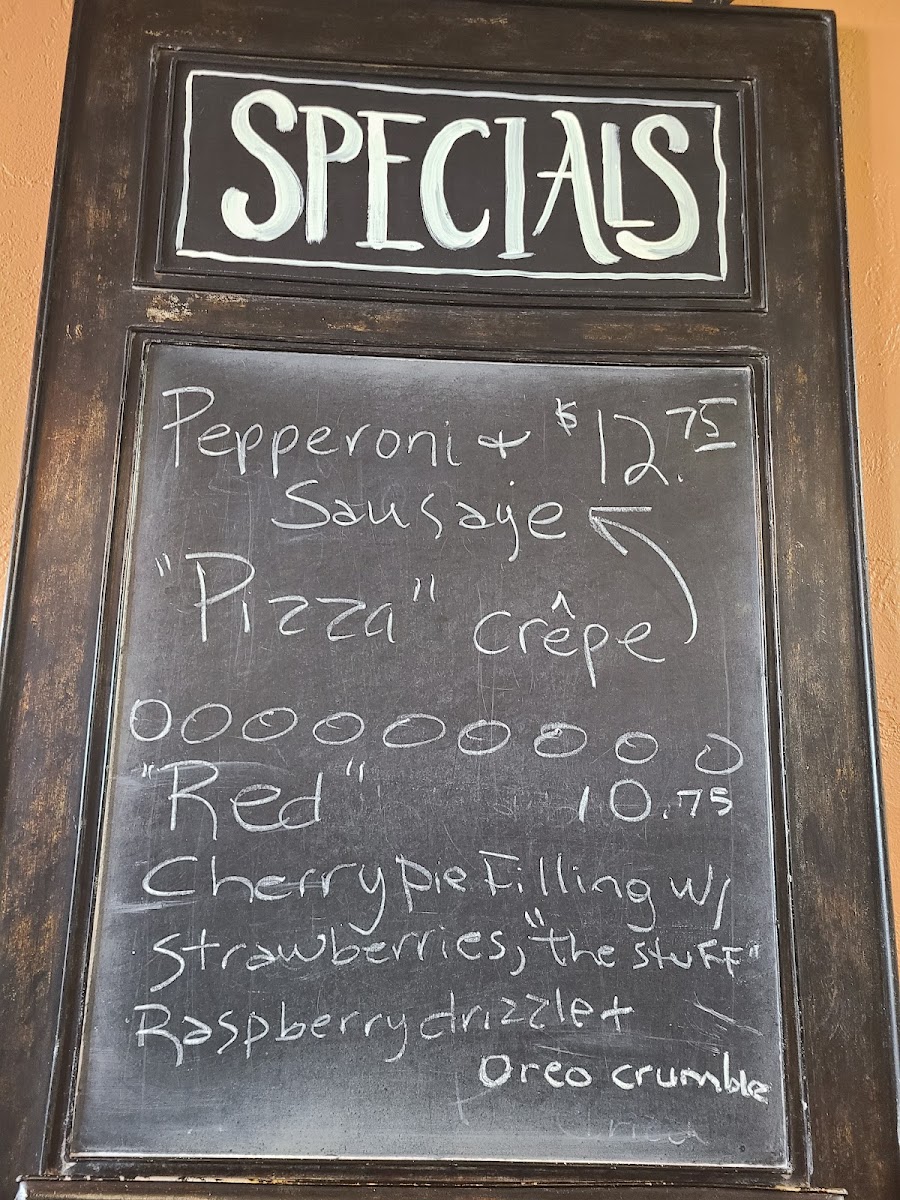 SPECIALS
Pepperoni + $12.75
Sausage
"Pizza" crêpe
"Red" 10.75
Cherry pie Filling w/
strawberries, "the stuff"
Raspberry drizzle +
Oreo crumble